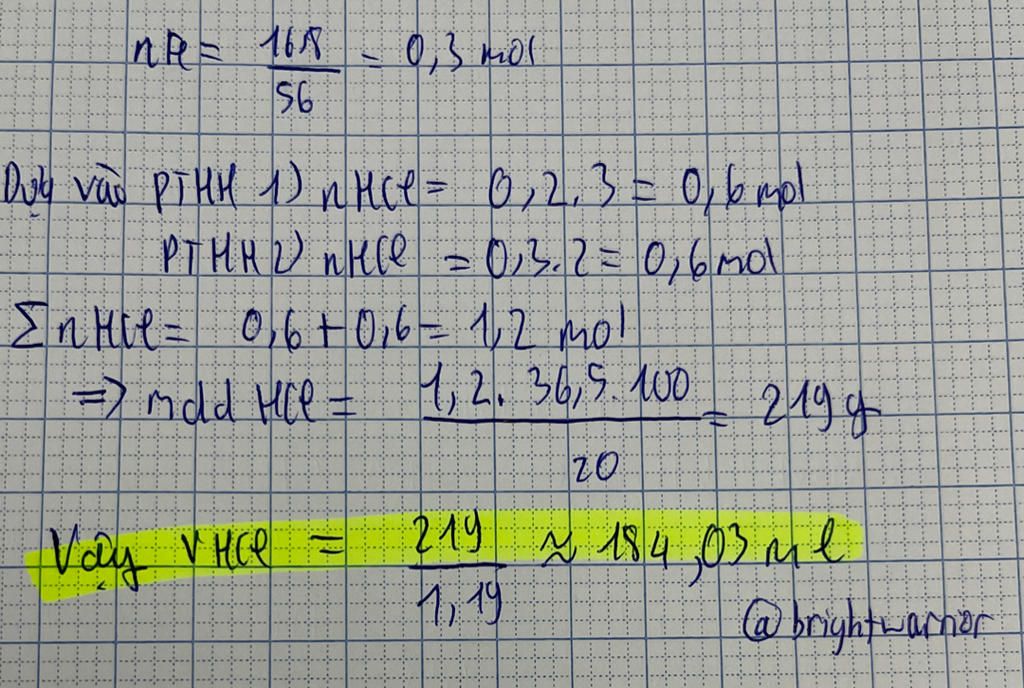 nFe = 16,8 / 56 = 0,3 mol
Dựa vào PTHH 1) nHCl = 0,2.3 = 0,6 mol
PTHH 2) nHCl = 0,3.2 = 0,6 mol
∑nHCl = 0,6 + 0,6 = 1,2 mol
=> mdd HCl = 1,2. 36,5. 100 / 20 = 219 g
Vậy VHCl = 219 / 1,19 ≈ 184,03 ml
@brightwarrior